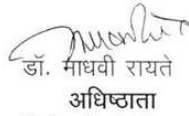 डॉ. माधवी रायते
अधिष्ठाता